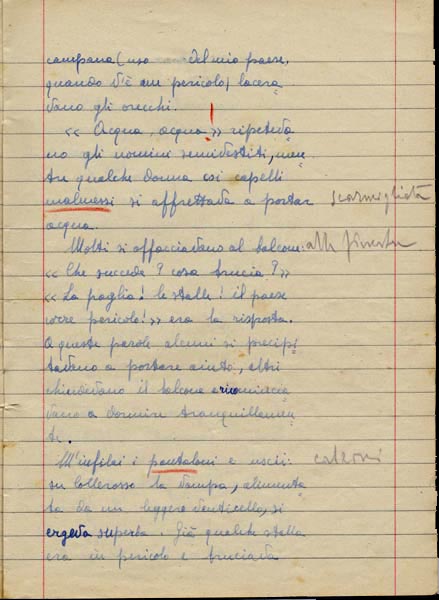 campana (uso del mio paese,
quando v'è un pericolo) lacera
vano gli orecchi.
« Acqua, acqua! » ripeteva
no gli uomini semivestiti, men
tre qualche donna coi capelli
malmessi si affrettava a portar scarmigliata
acqua.
Molti si affacciavano al balcone: alla finestra
« Che succede? cosa brucia? »
« La paglia! le stalle! il paese
corre pericolo! » era la risposta.
A queste parole alcuni si precipi
tavano a portare aiuto, altri
chiudevano il balcone e
vano a dormire tranquillamen
te.
M'infilai i pantaloni e uscii: calzoni
su Collerosso la vampa, alimenta
ta da un leggero venticello, si
ergeva superba. Già qualche stalla
era in pericolo e bruciava